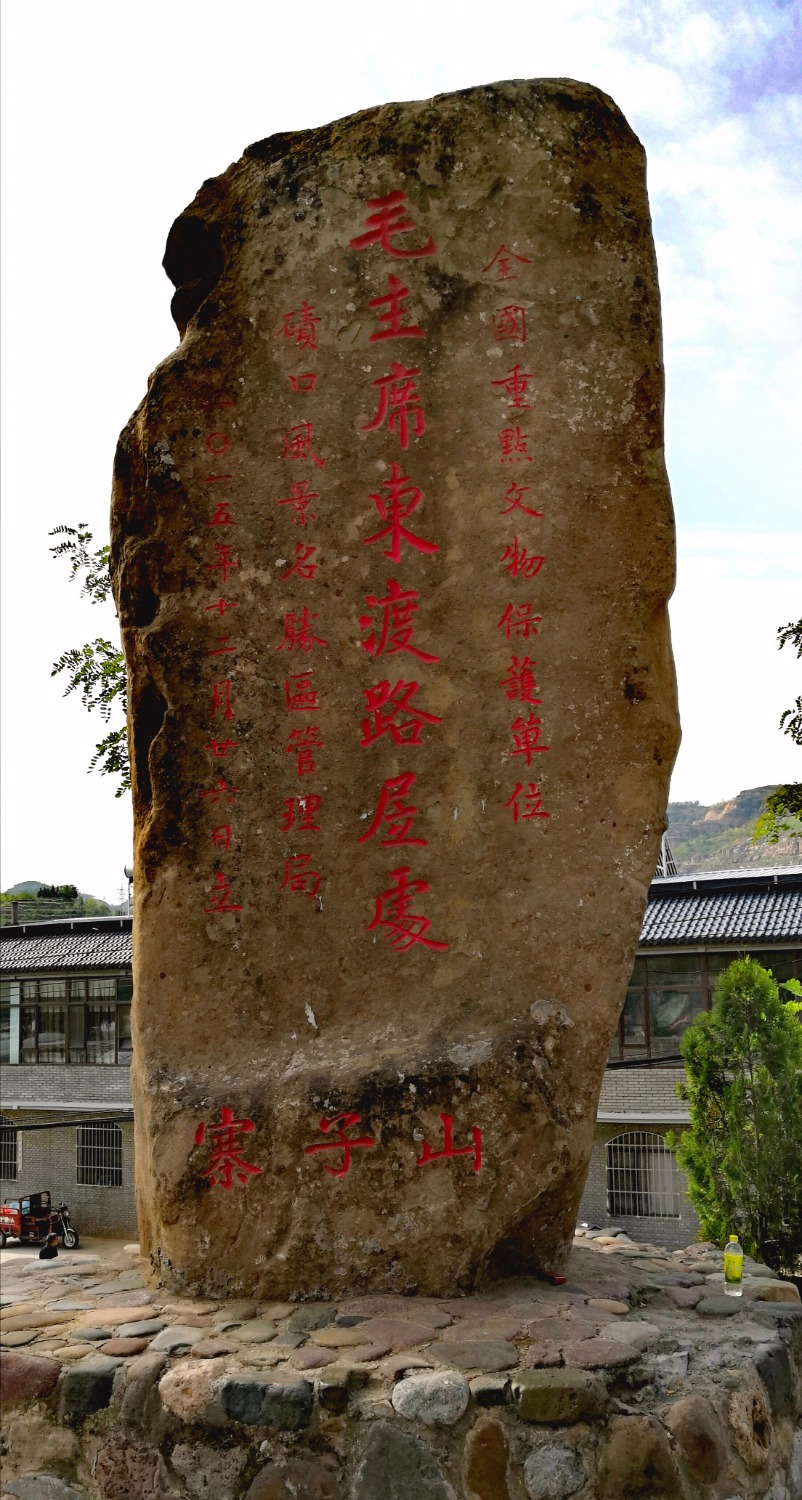 全國重點文物保護單位
毛主席東渡路居處
磧口風景名勝區管理局
二〇一五年十二月廿六日立
寨子山